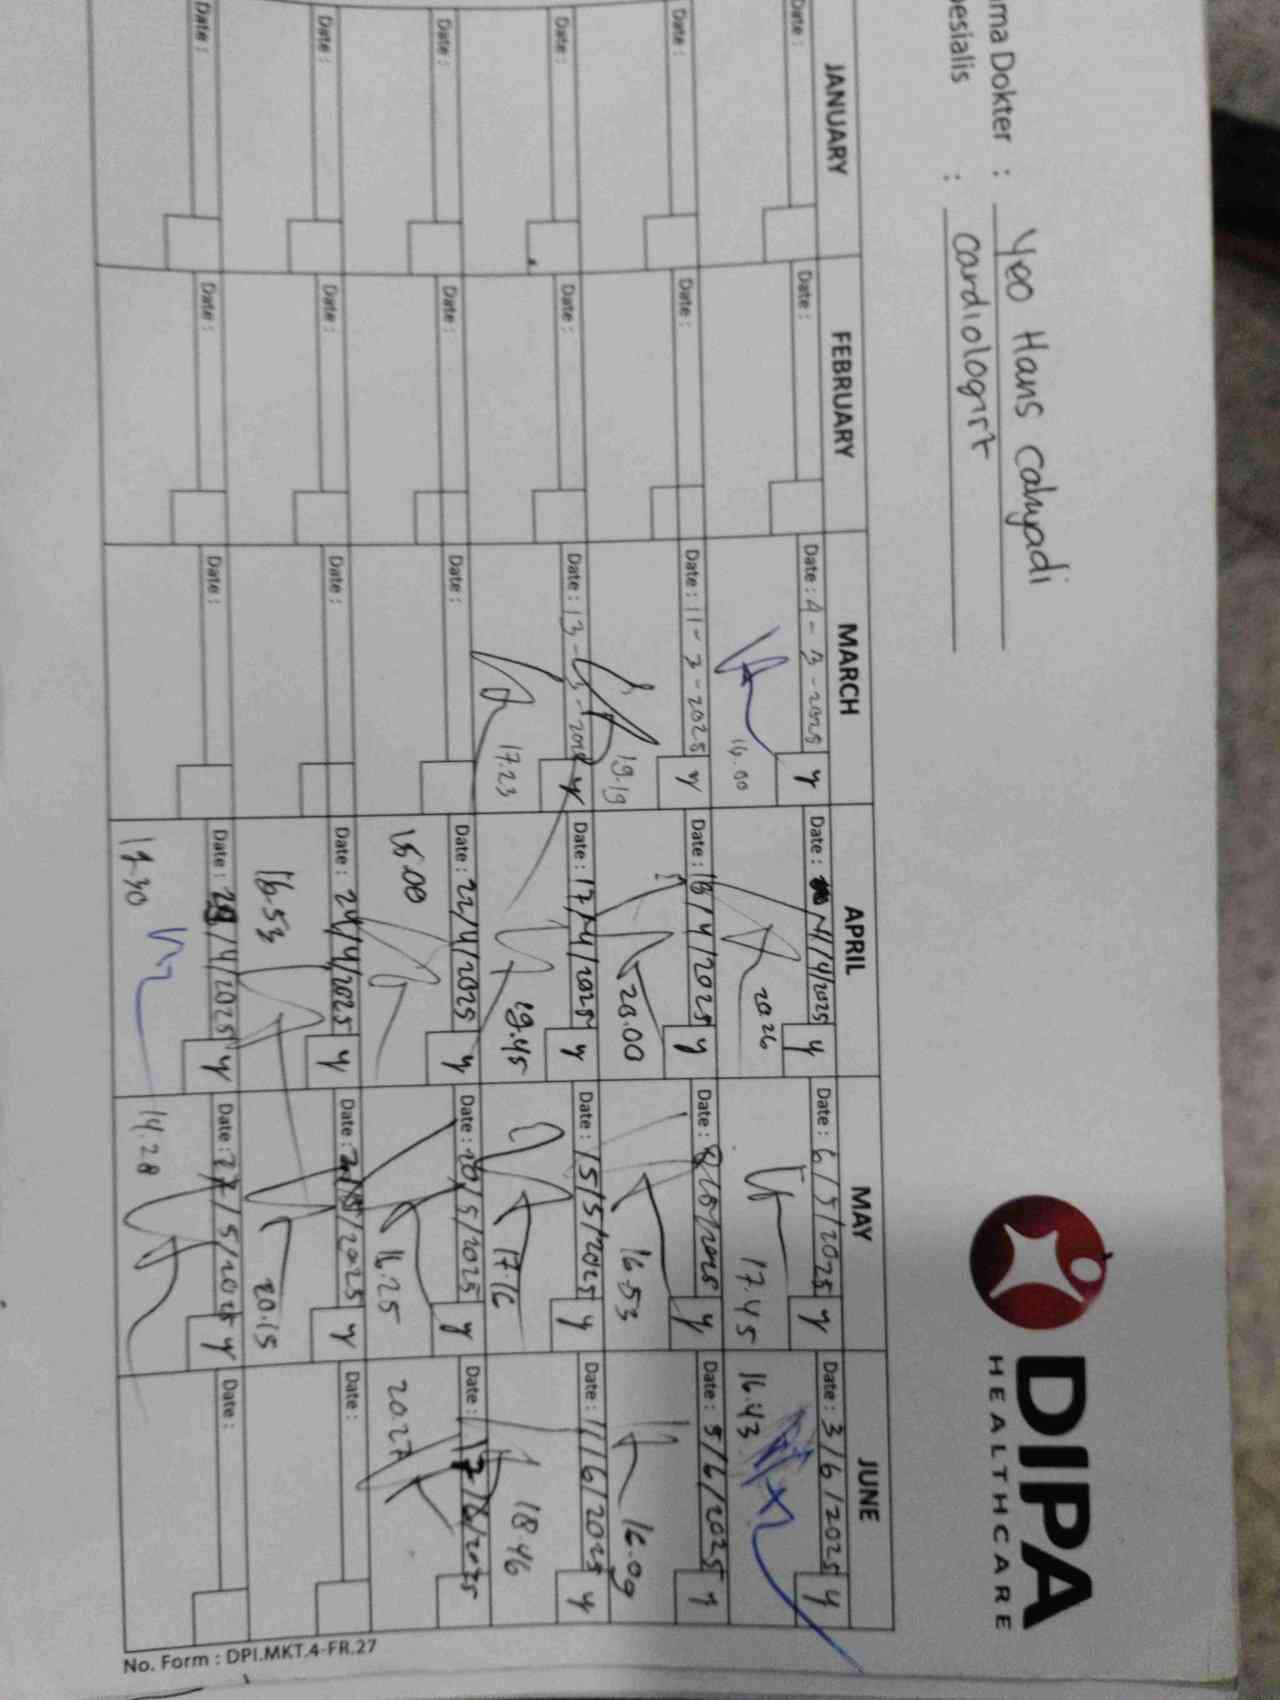 DIPA
HEALTHCARE
ma Dokter : Yeo Hans cahyadi
esialis : cardiologist
JANUARY FEBRUARY MARCH APRIL MAY JUNE
Date : Date : Date : 4-3-2025 y Date : 4/2025 y Date : 6/5/2025 y Date : 3/6/2025 y
20.26 17.45 16.43
Date : Date : Date : 11-3-2025 y Date : /4/2025 y Date : 8 y Date : 5/6/2025 y
19.19 20.00 16.53 16.09
Date : Date : Date : 13-3-2025 y Date : 17/4/2025 y Date : 15/5/2025 y Date : 11/6/2025 y
17.23 19.45 17.16 18.46
Date : Date : Date : Date : 22/4/2025 y Date : 20/5/2025 y Date : 17/6/2025
15.00 16.25 20.27
Date : Date : Date : Date : 24/4/2025 y Date : /2025 y Date :
16.53 20.15
Date : Date : Date : Date : /4/2025 y Date : 27/5/2025 y Date :
17.30 14.28
No. Form : DPI.MKT.4-FR.27